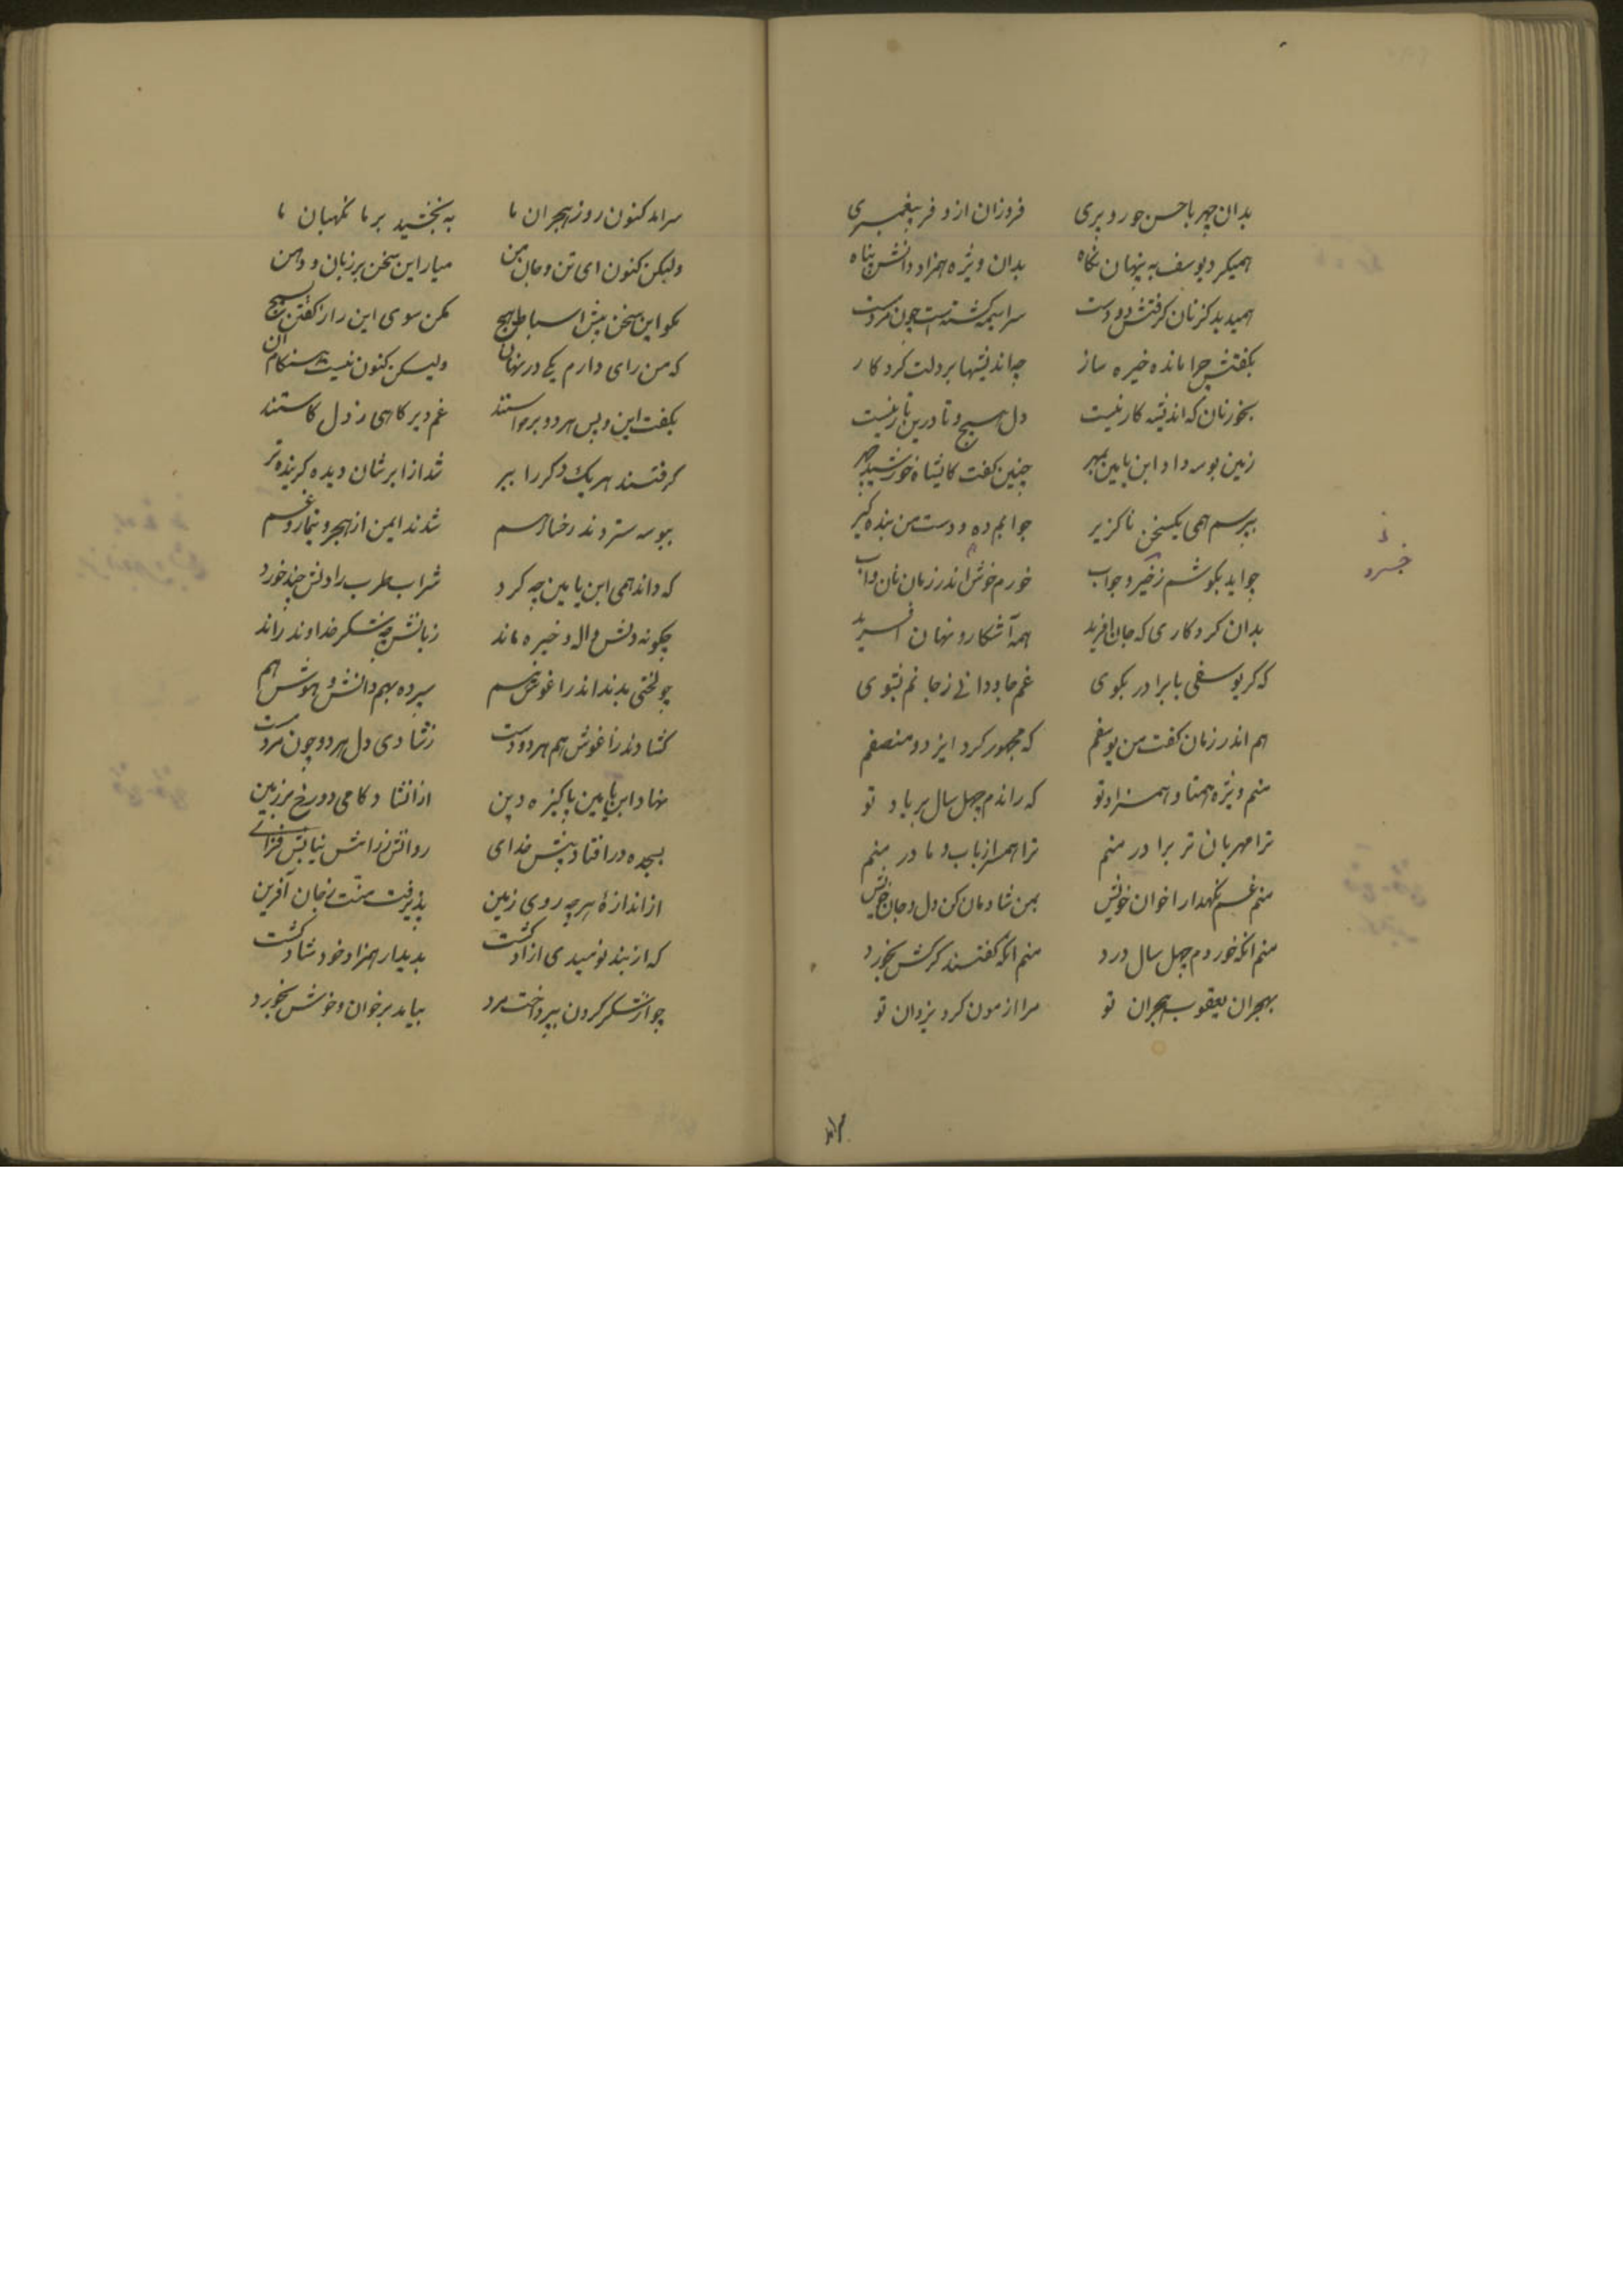 بدان چهر باحسن حور و پری فروزان ازو فر پیغمبری
همیکرد یوسف به پنهان نگاه بدان ویژه همزاد دانش پناه
همیدید کز نان گرفتش دو دست سراسیمه گشتست چون مرد مست
بگفتش چرا مانده خیره ساز چه اندیشها بر دلت کرد کار
بخور نان که اندیشه کار نیست دل هیچ دانا درین نیست
زمین بوسه داد ابن یامین بمهر چنین گفت کایشاه خورشید چهر
بپرسم همی یکسخن ناگزیر جوابم ده و دست من بنده گیر
چو اید بگوشم ز خیر و جواب خورم خوش اندر زمان نان و اب
خسرو
بدان کردگاری که جان افرید همه آشکار و نهان افرید
که گر یوسفی با برادر بگوی غم جاودانی ز جانم بشوی
هم اندر زمان گفت من یوسفم که مهجور کرد ایزد و منصفم
منم ویژه همتا و همزاد تو که راندم چهل سال بر یاد تو
ترا مهربان تر برادر منم ترا همسر از باب و مادر منم
منم غم نگهدار اخوان خویش بمن شادمان کن دل و جان خویش
منم انکه خوردم چهل سال درد منم انکه گفتند گرگش بخورد
بهجران یعقوب و هجران تو مرا ازمون کرد یزدان تو
سراید
سراید کنون روز هجران ما به بخشید بر ما نگهبان ما
ولیکن کنون ای تن و جان من میار این سخن بر زبان و دهن
مگو این سخن پیش اسباط هیچ مکن سوی این راز گفتن بسیج
که من رای دارم یکی در نهان ولیکن کنون نیست هنگام آن
بگفت این و پس هر دو برخواستند غم دیرگاهی ز دل کاستند
گرفتند هر یک دگر را ببر شد از ابرشان دیده گرینده تر
ببوسه ستردند رخسار هم شدند ایمن از هجر و تیمار و غم
که داند همی ابن یامین چه کرد شراب طرب را دلش چند خورد
چگونه دلش واله و خیره ماند زبانش چه شکر خداوند راند
چو لختی بدند اندر اغوش هم سپرده بهم دانش و هوش هم
گشادند ز اغوش هم هر دو دست ز شادی دل هر دو چون مرد مست
نهاد ابن یامین پاکیزه دین از انشادکامی دو رخ بر زمین
بسجده درافتاد پیش خدای روانش ز رامش نیایش فزای
از اندازهٔ هر چه روی زمین پذیرفت منت ز جان آفرین
که از بند نومیدی ازاد گشت بدیدار همزاد خود شاد گشت
چو از شکر کردن بپرداخت مرد بیامد بر خوان و خوش بخورد